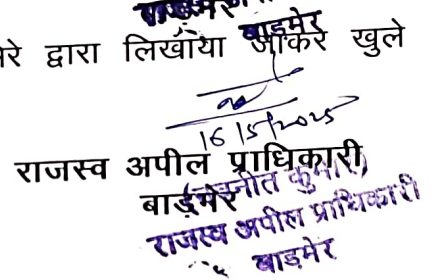 बाडमेर
रे द्वारा लिखाया जाकर खुले
बाडमेर
16/5/2025
राजस्व अपील प्राधिकारी,
बाड़मेर
राजस्व अपील प्राधिकारी
बाडमेर